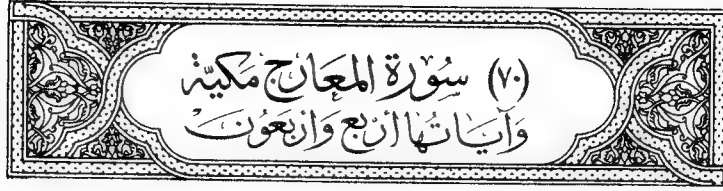 (٧٠) سُورَة المَعَارِج مَكِيَّة
وَآيَاتُهَا أَرْبَع وَأَرْبَعُونَ